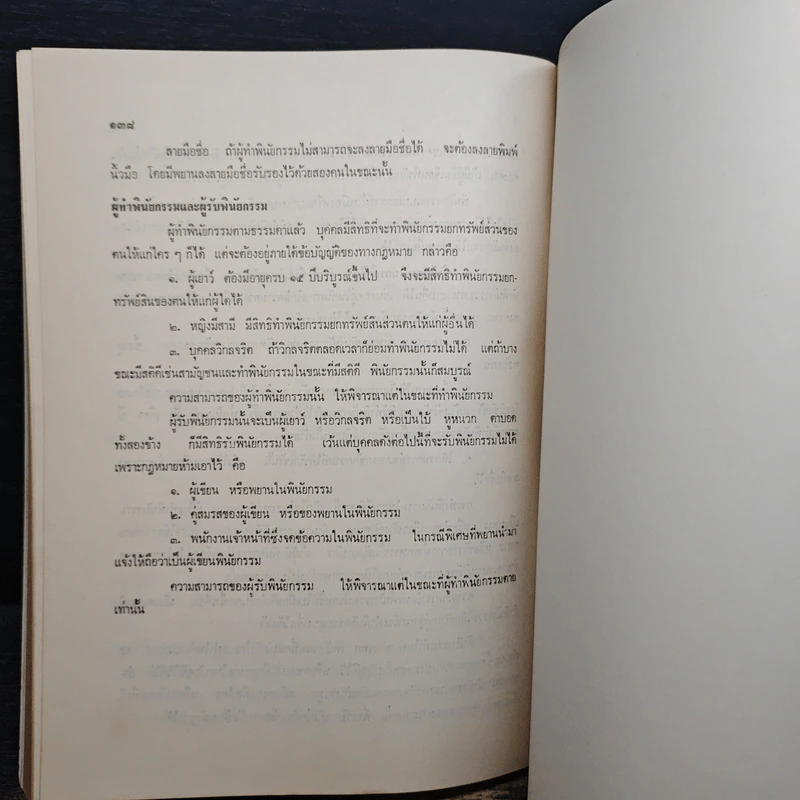 ๑๓๘
ลายมือชื่อ ถ้าผู้ทำพินัยกรรมไม่สามารถจะลงลายมือชื่อได้ จะต้องลงลายพิมพ์
นิ้วมือ โดยมีพยานลงลายมือชื่อรับรองไว้ด้วยสองคนในขณะนั้น
ผู้ทำพินัยกรรมและผู้รับพินัยกรรม
ผู้ทำพินัยกรรมตามธรรมดาแล้ว บุคคลมีสิทธิที่จะทำพินัยกรรมยกทรัพย์ส่วนของ
ตนให้แก่ใคร ๆ ก็ได้ แต่จะต้องอยู่ภายใต้ข้อบัญญัติของทางกฎหมาย กล่าวคือ
๑. ผู้เยาว์ ต้องมีอายุครบ ๑๕ ปีบริบูรณ์ขึ้นไป จึงจะมีสิทธิทำพินัยกรรมยก-
ทรัพย์สินของตนให้แก่ผู้ใดได้
๒. หญิงมีสามี มีสิทธิทำพินัยกรรมยกทรัพย์สินส่วนตนให้แก่ผู้อื่นได้
๓. บุคคลวิกลจริต ถ้าวิกลจริตตลอดเวลาก็ย่อมทำพินัยกรรมไม่ได้ แต่ถ้าบาง
ขณะมีสติดีเช่นสามัญชนและทำพินัยกรรมในขณะที่มีสติดี พินัยกรรมนั้นก็สมบูรณ์
ความสามารถของผู้ทำพินัยกรรมนั้น ให้พิจารณาแต่ในขณะที่ทำพินัยกรรม
ผู้รับพินัยกรรมนั้นจะเป็นผู้เยาว์ หรือวิกลจริต หรือเป็นใบ้ หูหนวก ตาบอด
ทั้งสองข้าง ก็มีสิทธิรับพินัยกรรมได้ เว้นแต่บุคคลดังต่อไปนี้ที่จะรับพินัยกรรมไม่ได้
เพราะกฎหมายห้ามเอาไว้ คือ
๑. ผู้เขียน หรือพยานในพินัยกรรม
๒. คู่สมรสของผู้เขียน หรือของพยานในพินัยกรรม
๓. พนักงานเจ้าหน้าที่ซึ่งจดข้อความในพินัยกรรม ในกรณีพิเศษที่พยานนำมา
แจ้งให้ถือว่าเป็นผู้เขียนพินัยกรรม
ความสามารถของผู้รับพินัยกรรม ให้พิจารณาแต่ในขณะที่ผู้ทำพินัยกรรมตาย
เท่านั้น